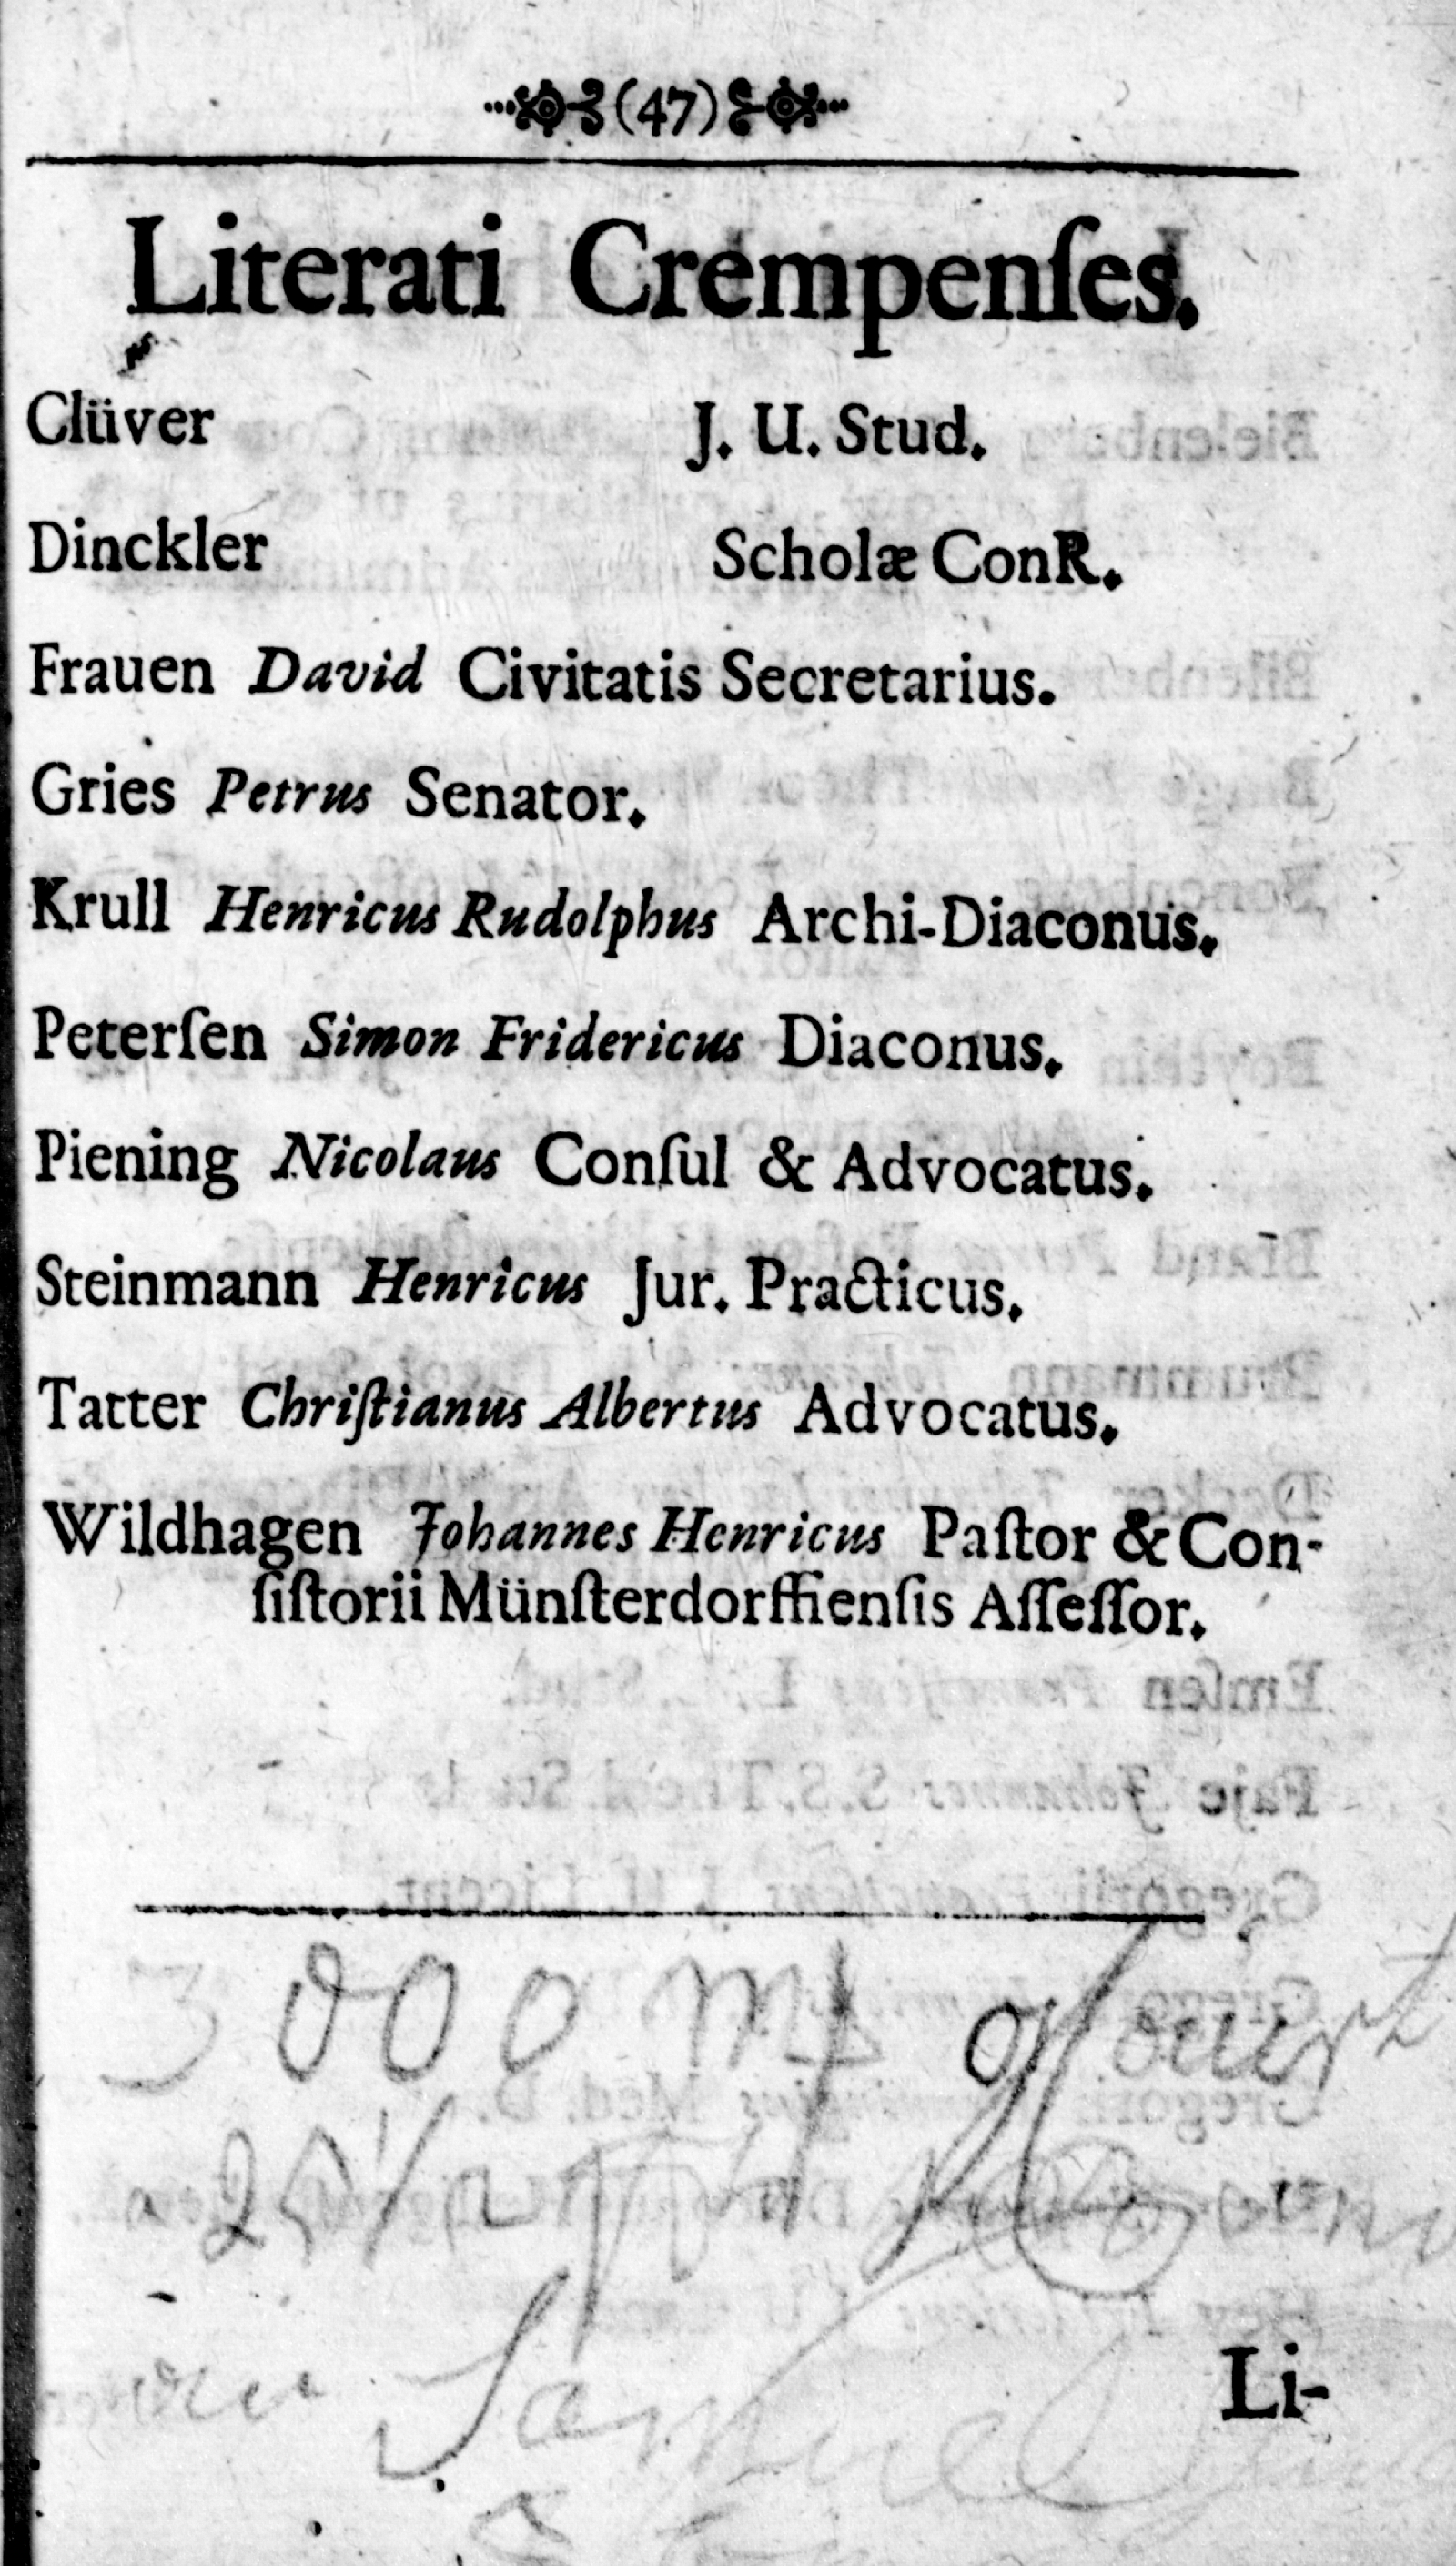 (47)
Literati Crempenſes.
Clüver J. U. Stud.
Dinckler Scholæ ConR.
Frauen David Civitatis Secretarius.
Gries Petrus Senator.
Krull Henricus Rudolphus Archi-Diaconus.
Peterſen Simon Fridericus Diaconus.
Piening Nicolaus Conſul & Advocatus.
Steinmann Henricus Jur. Practicus.
Tatter Chriſtianus Albertus Advocatus.
Wildhagen Johannes Henricus Paſtor & Con-
ſiſtorii Münſterdorffienſis Aſſeſſor.
3000
Samuel
Li-